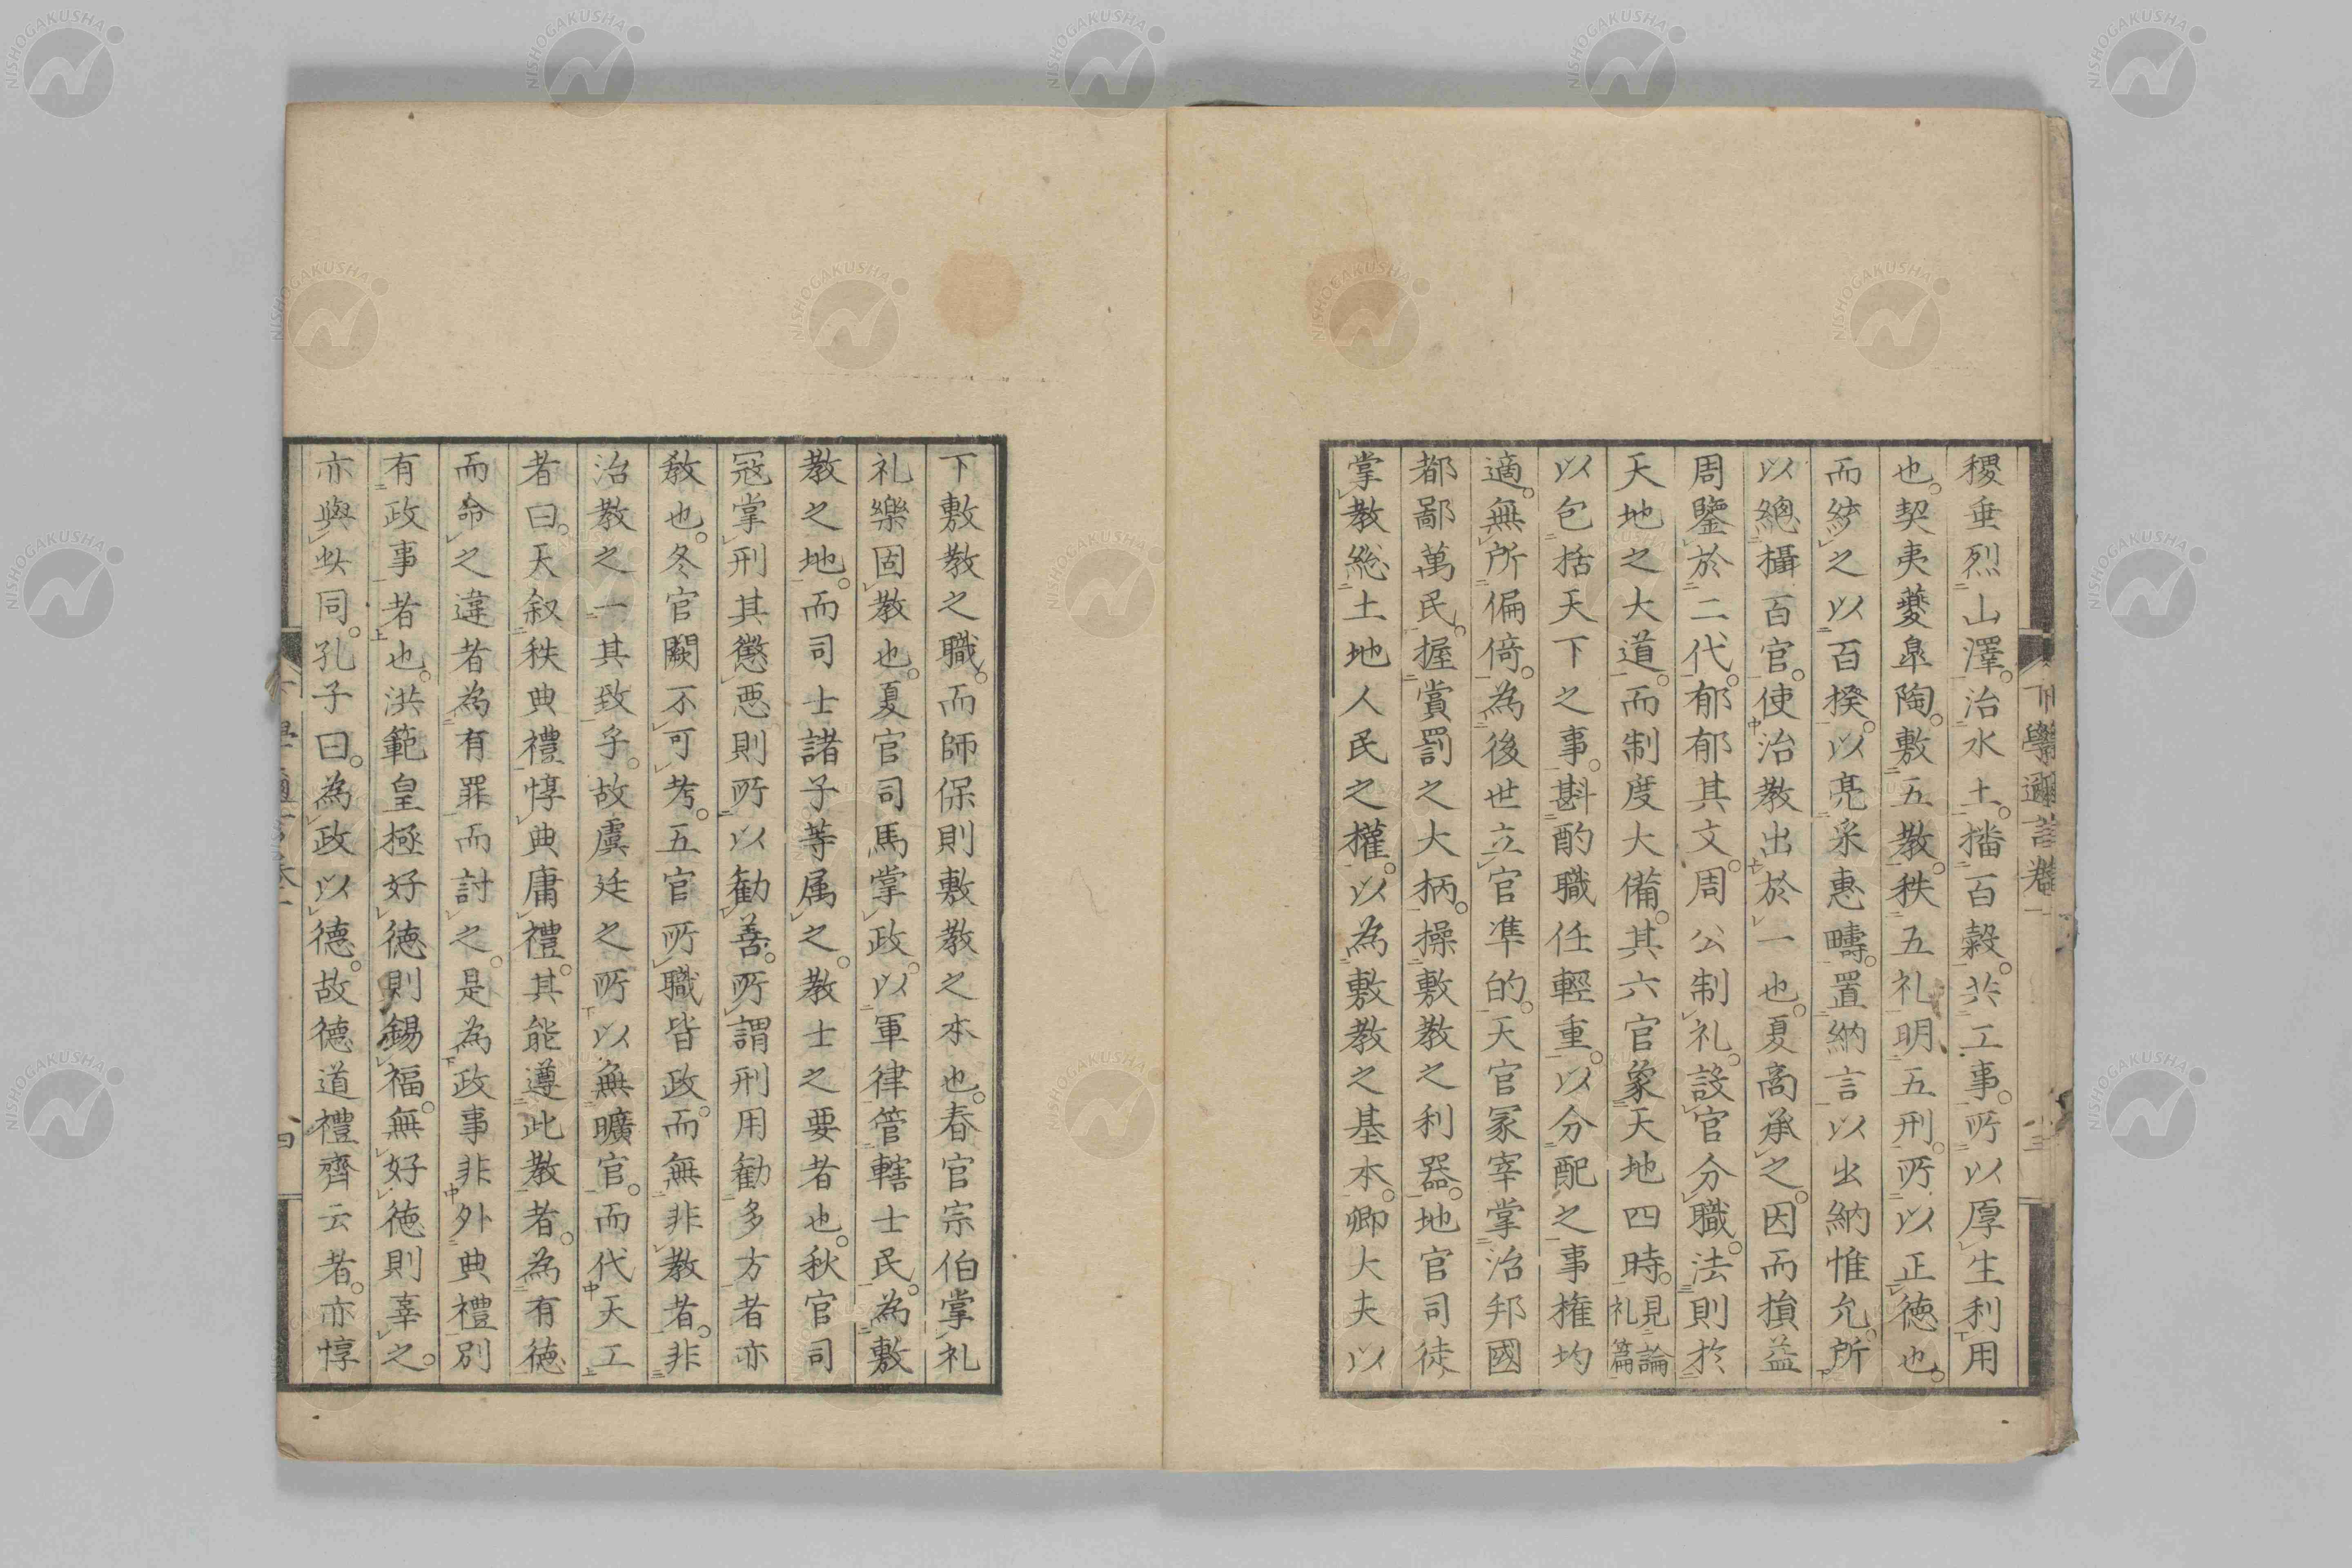 稷垂烈山澤。治水土。播百穀。共工事。所以厚生利用
也。契夷夔皐陶。敷五教。秩五礼明五刑。所以正徳也。
而統之以百揆。以亮采惠疇。置納言以出納惟允。所
以總攝百官。使治教出於一也。夏商承之。因而損益
周鑒於二代。郁郁其文。周公制礼。設官分職。法則於
天地之大道。而制度大備。其六官象天地四時。見論礼篇
以包括天下之事。斟酌職任輕重。以分配之事権均
適。無所偏倚。為後世立官準的。天官冢宰掌治邦國
都鄙萬民。握賞罰之大柄。操敷教之利器。地官司徒
掌教総土地人民之權。以為敷教之基本。卿大夫以
下學邇言卷一
下敷教之職。而師保則敷教之本也。春官宗伯掌礼
礼樂固教也。夏官司馬掌政。以軍律管轄士民。為敷
教之地。而司士諸子等属之。教士之要者也。秋官司
冦掌刑其懲悪則所以勧善。所謂刑用勧多方者亦
教也。冬官闕不可考。五官所職皆政。而無非教者。非
治教之一其致乎。故虞廷之所以無曠官。而代天工
者曰。天叙秩典禮惇典庸禮。其能遵此教者。為有徳
而命之違者為有罪而討之。是為政事非外典禮別
有政事者也。洪範皇極好徳則錫福。無好徳則辜之。
亦與此同。孔子曰。為政以德。故德道禮齊云者。亦惇